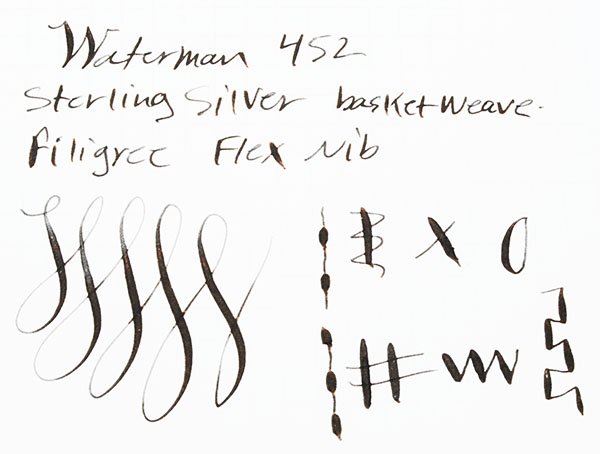 Waterman 452
Sterling Silver basketweave.
Filigree Flex Nib